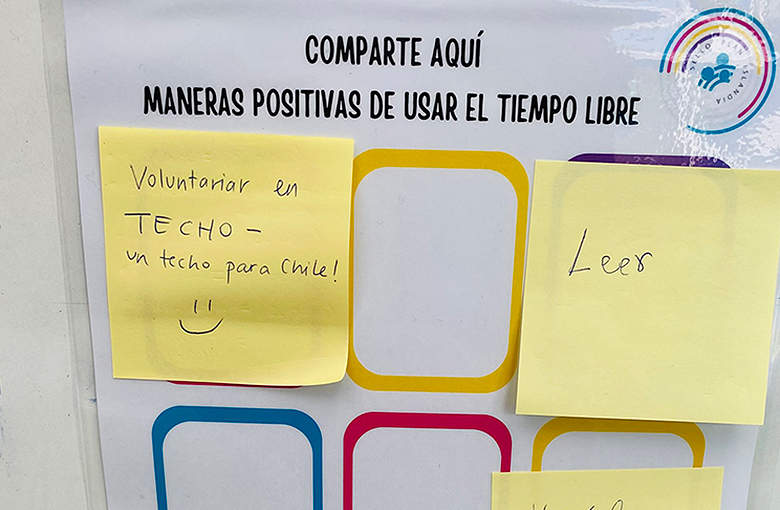 COMPARTE AQUÍ
MANERAS POSITIVAS DE USAR EL TIEMPO LIBRE
SELLO PLAN ISLANDIA
Voluntariar en
TECHO –
un techo para Chile!
Leer